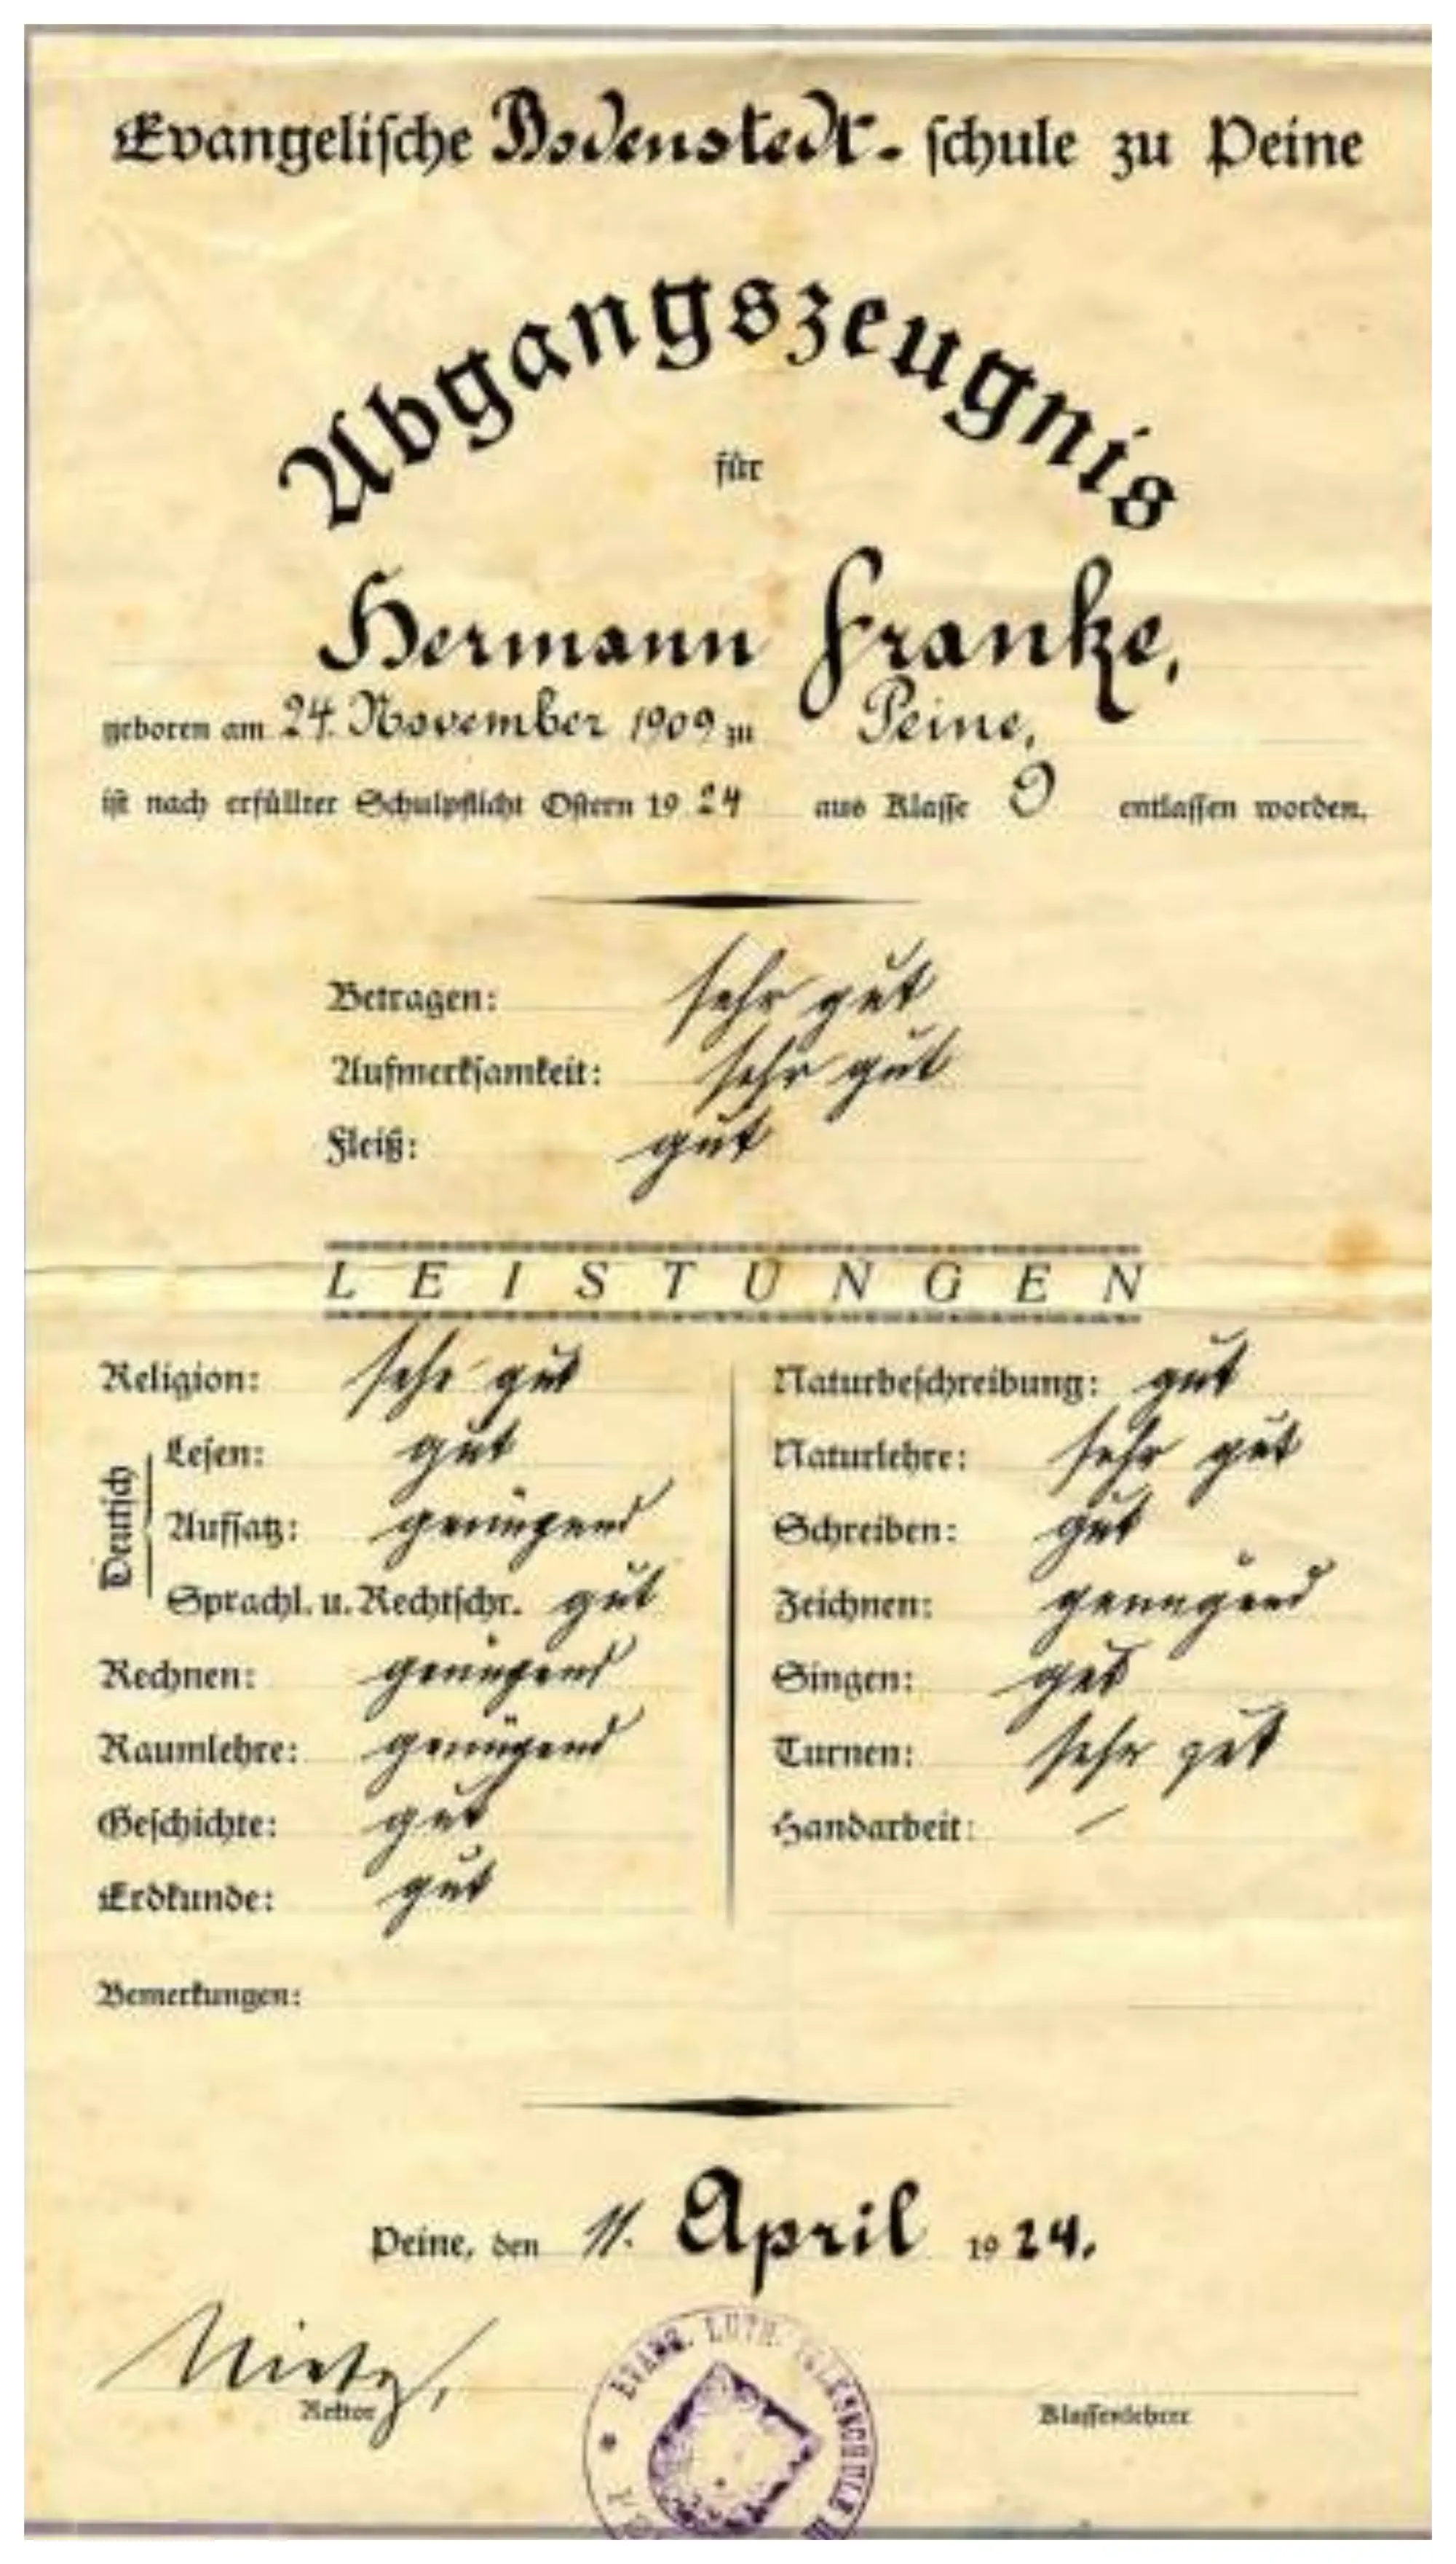 Evangelische Bodenstedt-schule zu Peine
Abgangszeugnis
für
Hermann Franke,
geboren am 24. November 1909 zu Peine,
ist nach erfüllter Schulpflicht Ostern 1924 aus Klasse entlassen worden.
Betragen: sehr gut
Aufmerksamkeit: sehr gut
Fleiß: gut
LEISTUNGEN
Religion: sehr gut
Deutsch
Lesen: gut
Aufsatz: genügend
Sprachl. u. Rechtschr. gut
Rechnen: genügend
Raumlehre: genügend
Geschichte: gut
Erdkunde: gut
Naturbeschreibung: gut
Naturlehre: sehr gut
Schreiben: gut
Zeichnen: genügend
Singen: gut
Turnen: sehr gut
Handarbeit: –
Bemerkungen:
Peine, den 11. April 1924.
Rektor
Klassenlehrer
EVANG. LUTH. VOLKSSCHULE